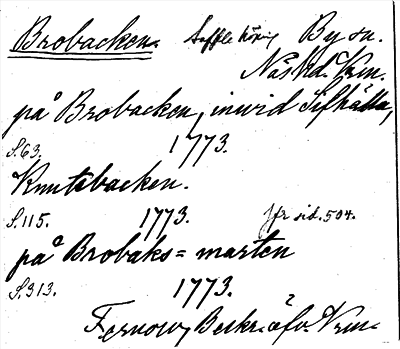 Brobacken. Seffle köping By sn.
Näs hd. Vrm.
på Brobacken, inwid Sifhälla,
S.63. 1773.
Knutsbacken.
S.115. 1773. Jfr sid. 504.
på Brobaks=marken
S.313. 1773.
Fernow, Beskr. öfv. Vrm.